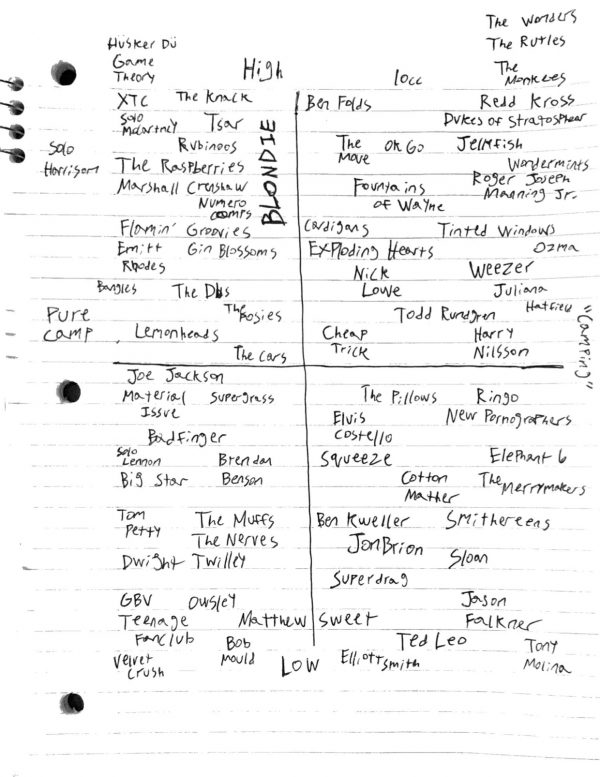 The Wonders
Hüsker Dü
The Rutles
Game
Theory
High
10cc
The
Monkees
XTC
The Knack
Ben Folds
Redd Kross
Solo
McCartney
Tsar
Dukes of Stratosphear
BLONDIE
Solo
Harrison
Rubinoos
The
Move
OK Go
Jellyfish
The Raspberries
Wondermints
Marshall Crenshaw
Fountains
of Wayne
Roger Joseph
Manning Jr.
Numero
comps
Flamin' Groovies
Cardigans
Tinted Windows
Emitt
Rhodes
Gin Blossoms
Exploding Hearts
Ozma
Nick
Lowe
Weezer
Bangles
The Dbs
Juliana
Hatfield
Pure
Camp
The
Posies
Todd Rundgren
"Camping"
Lemonheads
Cheap
Trick
Harry
Nilsson
The Cars
Joe Jackson
Material
Issue
Supergrass
The Pillows
Ringo
Elvis
Costello
New Pornographers
Badfinger
Solo
Lennon
Brendan
Benson
Squeeze
Elephant 6
Big Star
Cotton
Mather
The
Merrymakers
Tom
Petty
The Muffs
Ben Kweller
Smithereens
The Nerves
Jon Brion
Dwight Twilley
Sloan
Superdrag
GBV
Owsley
Jason
Falkner
Teenage
Fanclub
Matthew Sweet
Bob
Mould
Ted Leo
Tony
Molina
Velvet
Crush
Low
Elliott Smith